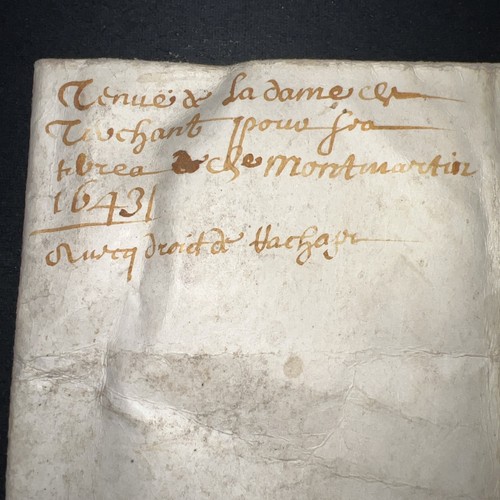 Tenue de La dame de
Touchant pour sea
tbrea de montmartin
1643
Avecq droict de Vachage